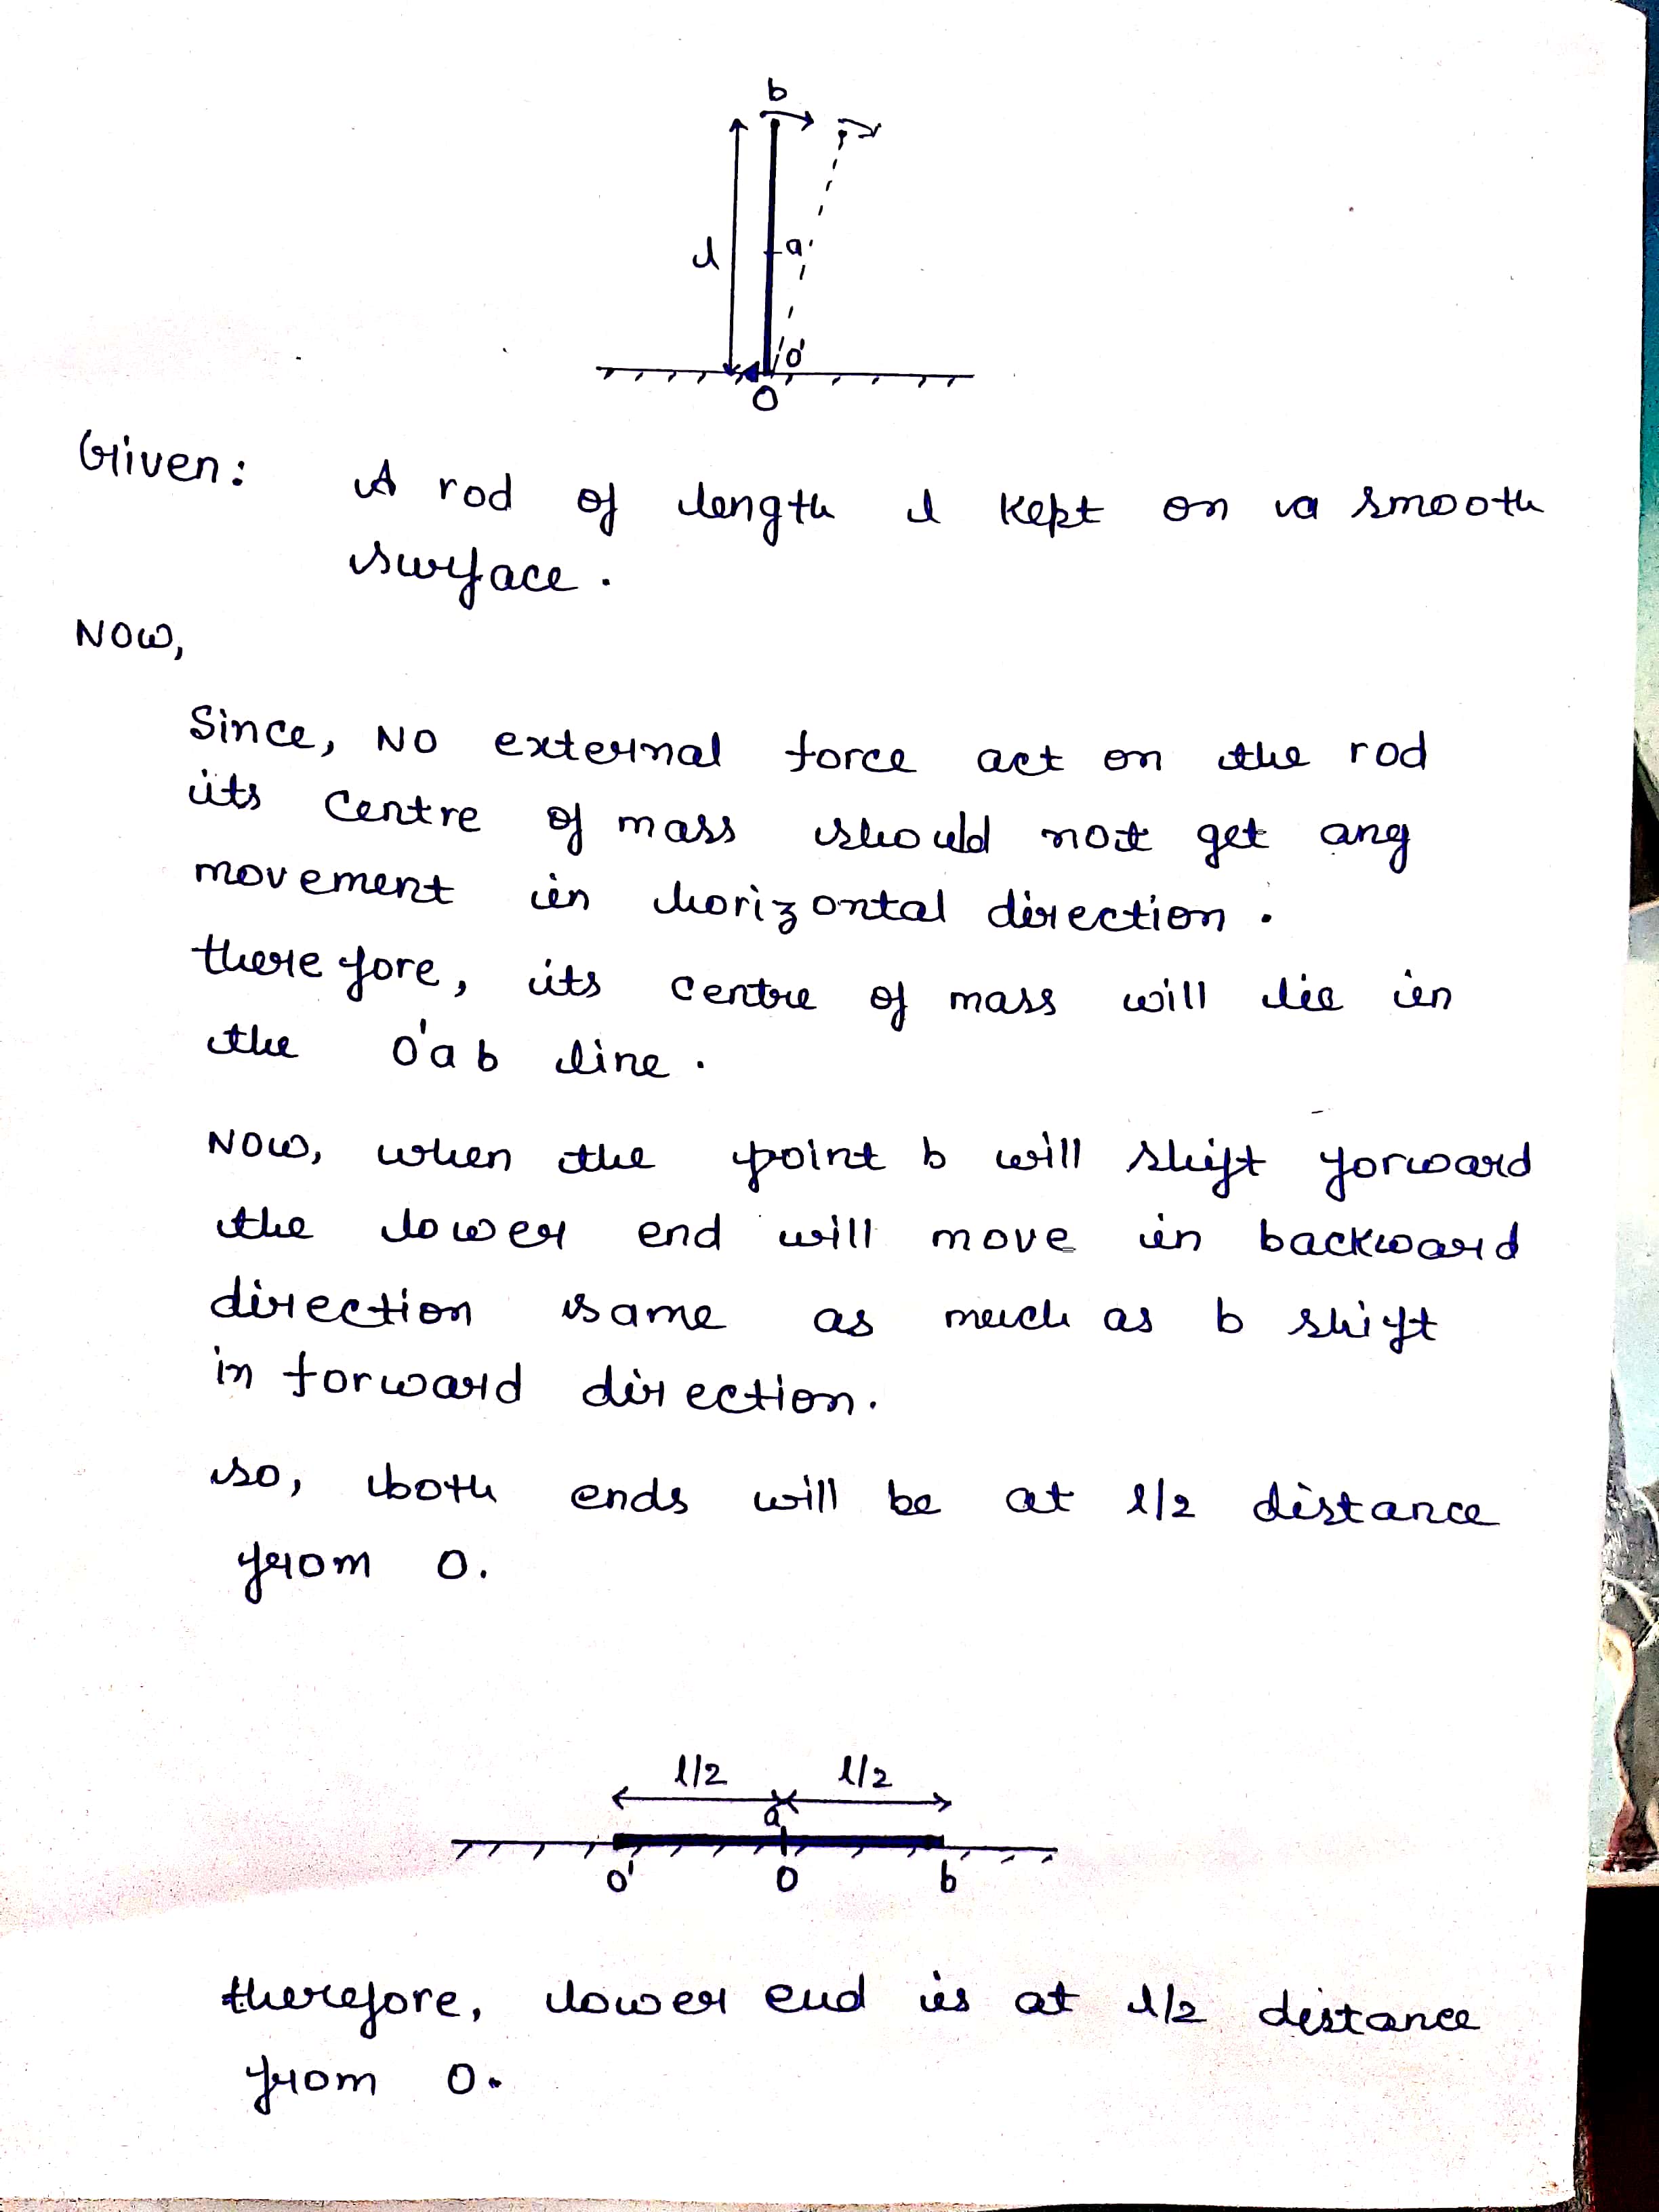 b
l
a
o'
O
Given: A rod of length l kept on a smooth
surface.
Now,
Since, No external force act on the rod
its centre of mass should not get any
movement in horizontal direction.
therefore, its centre of mass will lie in
the o'ab line.
Now, when the point b will shift forward
the lower end will move in backward
direction same as much as b shift
in forward direction.
so, both ends will be at l/2 distance
from O.
l/2 l/2
a
o' O b
therefore, lower end is at l/2 distance
from O.